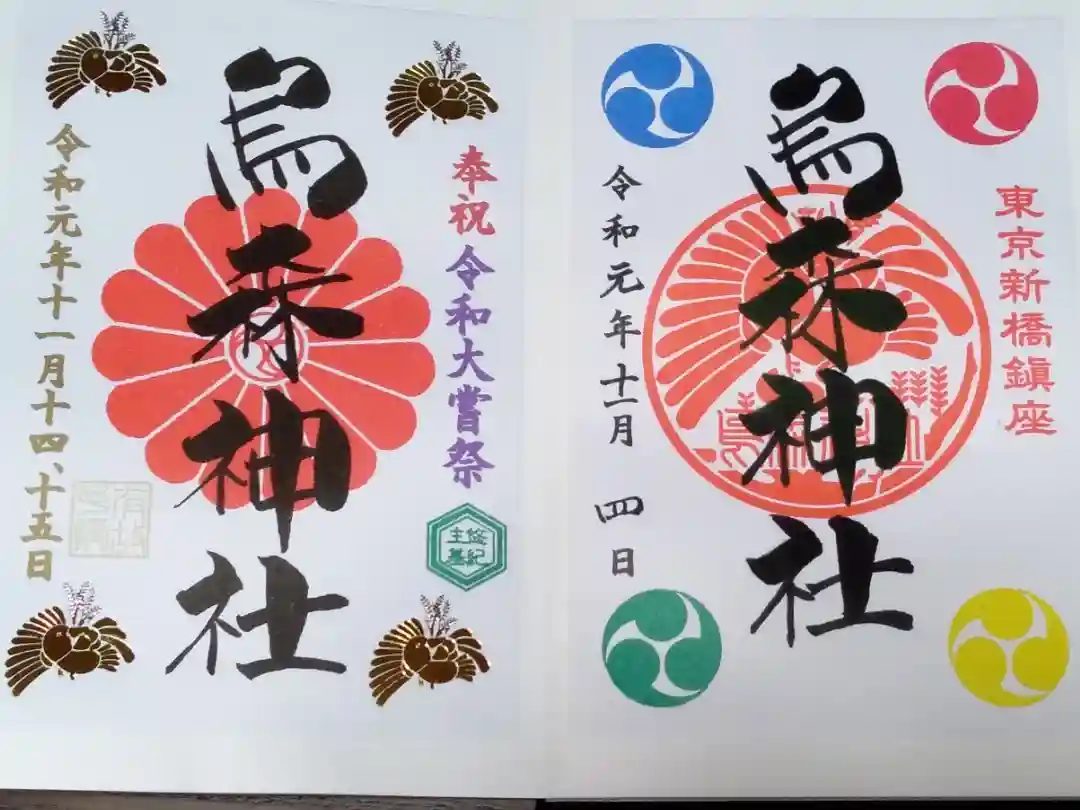 東京新橋鎮座
烏森神社
令和元年十一月
四日
奉祝 令和大嘗祭
悠紀
主基
烏森神社
令和元年十一月十四、十五日